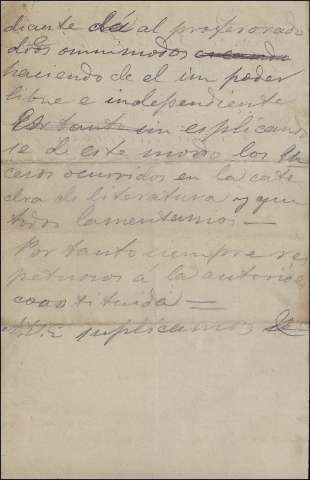 diante dá al profesorado
dros omnimodos creando
haciendo de el un poder
libre e independiente
Por tanto un esplicando
se de este modo los su
cesos ocurridos en la cate
dra de literatura y que
todos lamentamos —
Por tanto siempre res
petuosos á la autoridad
constituida —
A V.E. suplicamos se